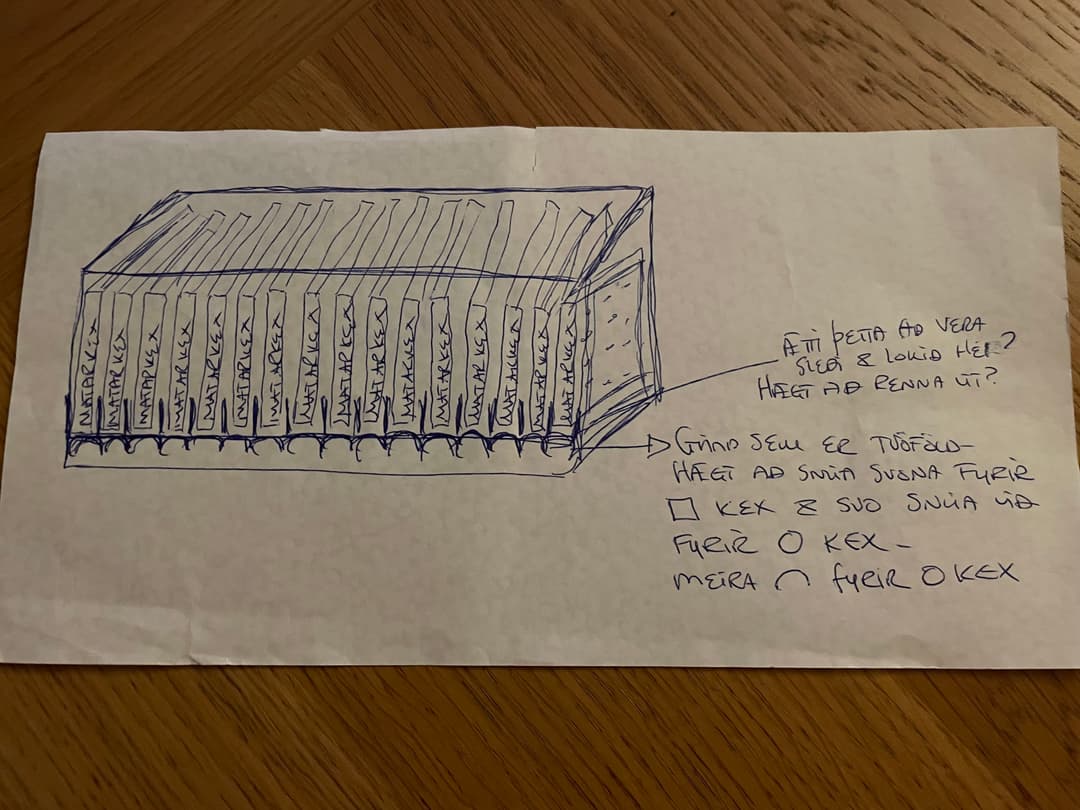 MATARKEX MATARKEX MATARKEX MATARKEX MATARKEX MATARKEX MATARKEX MATARKEX MATARKEX MATARKEX MATARKEX MATARKEX MATARKEX MATARKEX MATARKEX MATARKEX
ÆTTI ÞETTA AÐ VERA
& LOKIÐ HÉR?
HÆGT AÐ RENNA ÚT?
SEM ER TVÖFÖLD-
HÆGT AÐ SNÚA SVONA FYRIR
□ KEX & SVO SNÚA VIÐ
FYRIR O KEX -
MEIRA ⌒ FYRIR O KEX